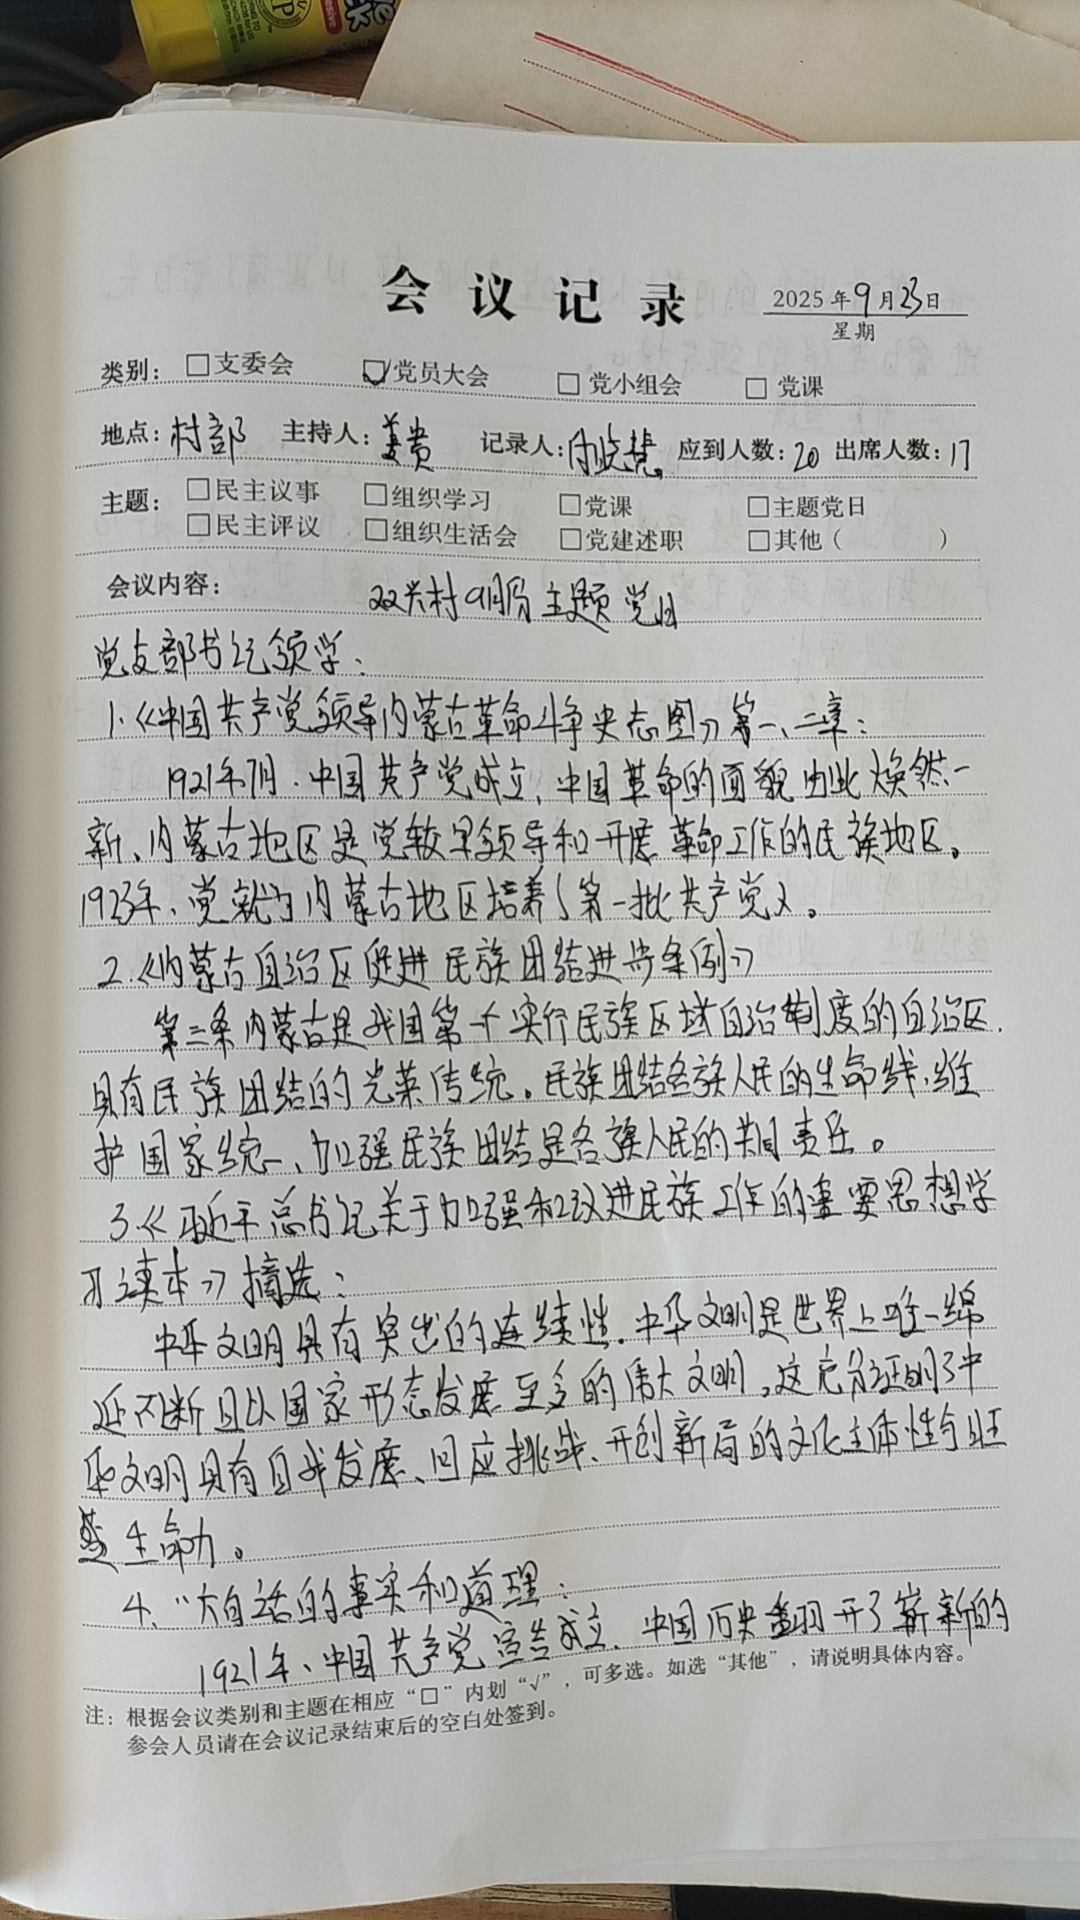 会议记录
2025年9月23日
星期
类别：□支委会 ☑党员大会 □党小组会 □党课
地点：村部 主持人：姜贵 记录人： 应到人数：20 出席人数：17
主题：□民主议事 □组织学习 □党课 □主题党日
□民主评议 □组织生活会 □党建述职 □其他（ ）
会议内容： 双兴村9月份主题党日
党支部书记领学：
1.《中国共产党领导内蒙古革命斗争史志图》第一、二章：
1921年7月．中国共产党成立，中国革命的面貌由此焕然一
新、内蒙古地区是党较早领导和开展革命工作的民族地区。
1923年、党就为内蒙古地区培养了第一批共产党人。
2.《内蒙古自治区促进民族团结进步条例》
第二条内蒙古是我国第一个实行民族区域自治制度的自治区．
具有民族团结的光荣传统。民族团结各族人民的生命线，维
护国家统一、加强民族团结是各族人民的共同责任。
3.《习近平总书记关于加强和改进民族工作的重要思想学
习读本》摘选：
中华文明具有突出的连续性．中华文明是世界上唯一绵
延不断且以国家形态发展至多的伟大文明，这充分证明了中
华文明具有自我发展、回应挑战、开创新局的文化主体性与旺
盛生命力。
4、“大白话的事实和道理：
1921年、中国共产党宣告成立．中国历史翻开了崭新的
注：根据会议类别和主题在相应“□”内划“√”，可多选。如选“其他”，请说明具体内容。
参会人员请在会议记录结束后的空白处签到。